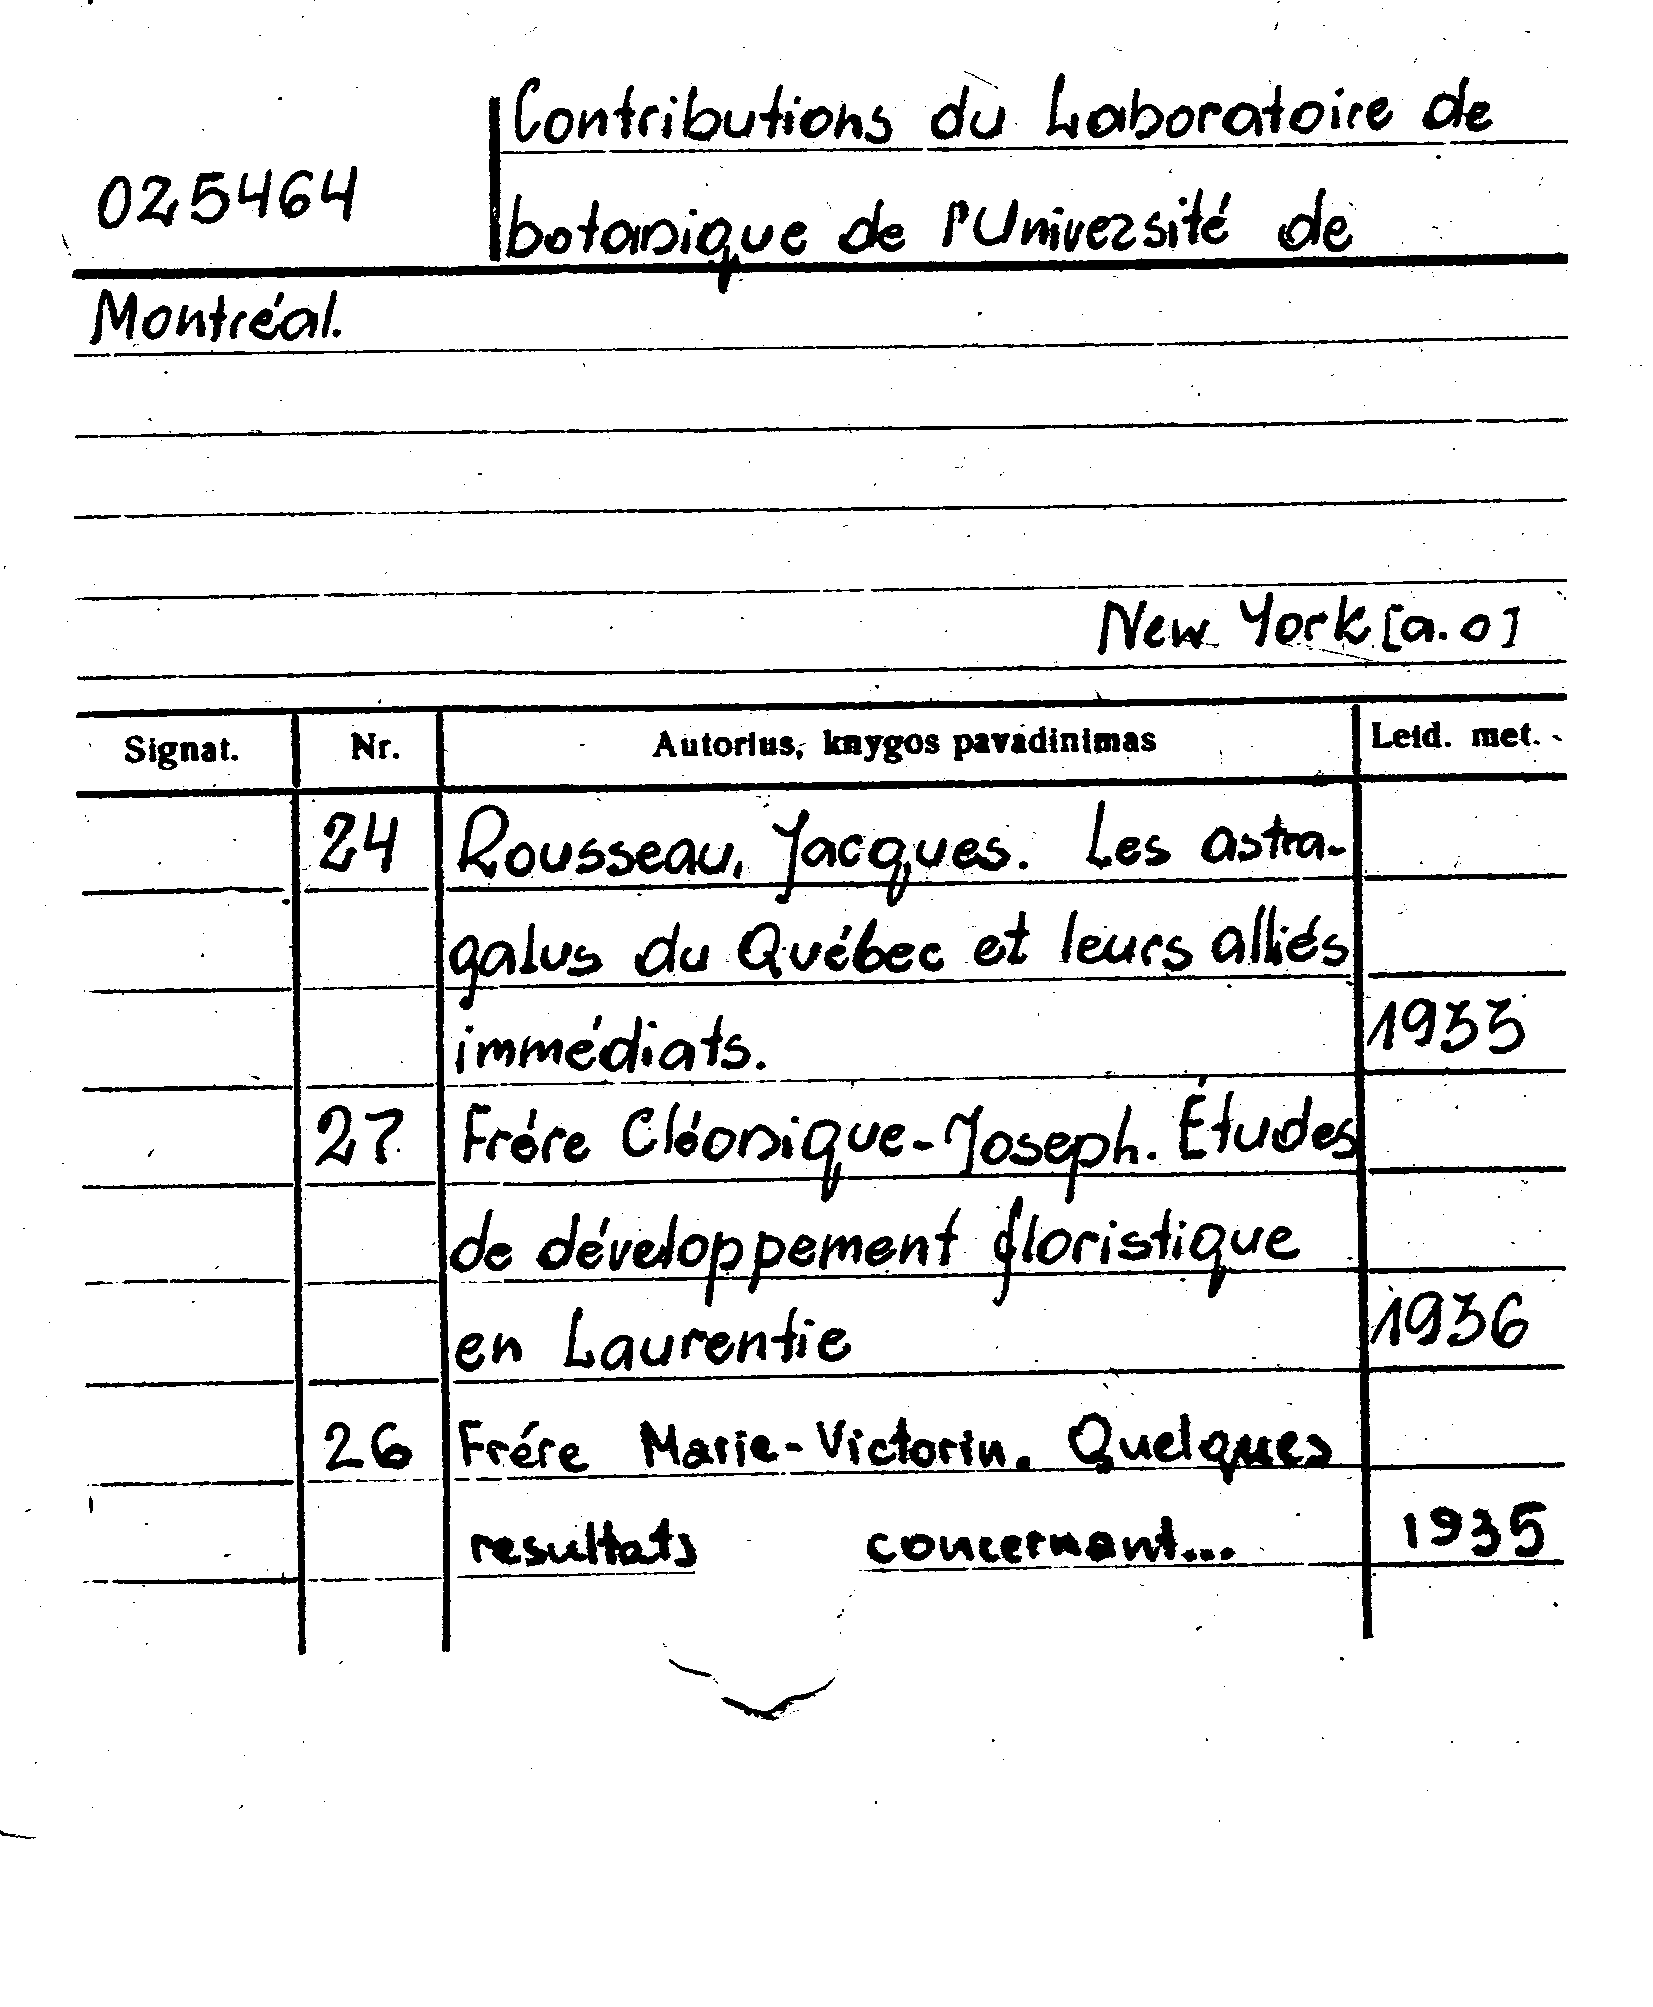 Contributions du Laboratoire de
025464
botanique de l'Université de
Montréal.
New York [a.o]
Signat. Nr. Autorius, knygos pavadinimas Leid. met.
24 Rousseau, Jacques. Les astra-
galus du Québec et leurs alliés
immédiats. 1933
27 Frére Cléonique-Joseph. Études
de développement floristique
en Laurentie 1936
26 Frére Marie-Victorin. Quelques
resultats concernant... 1935